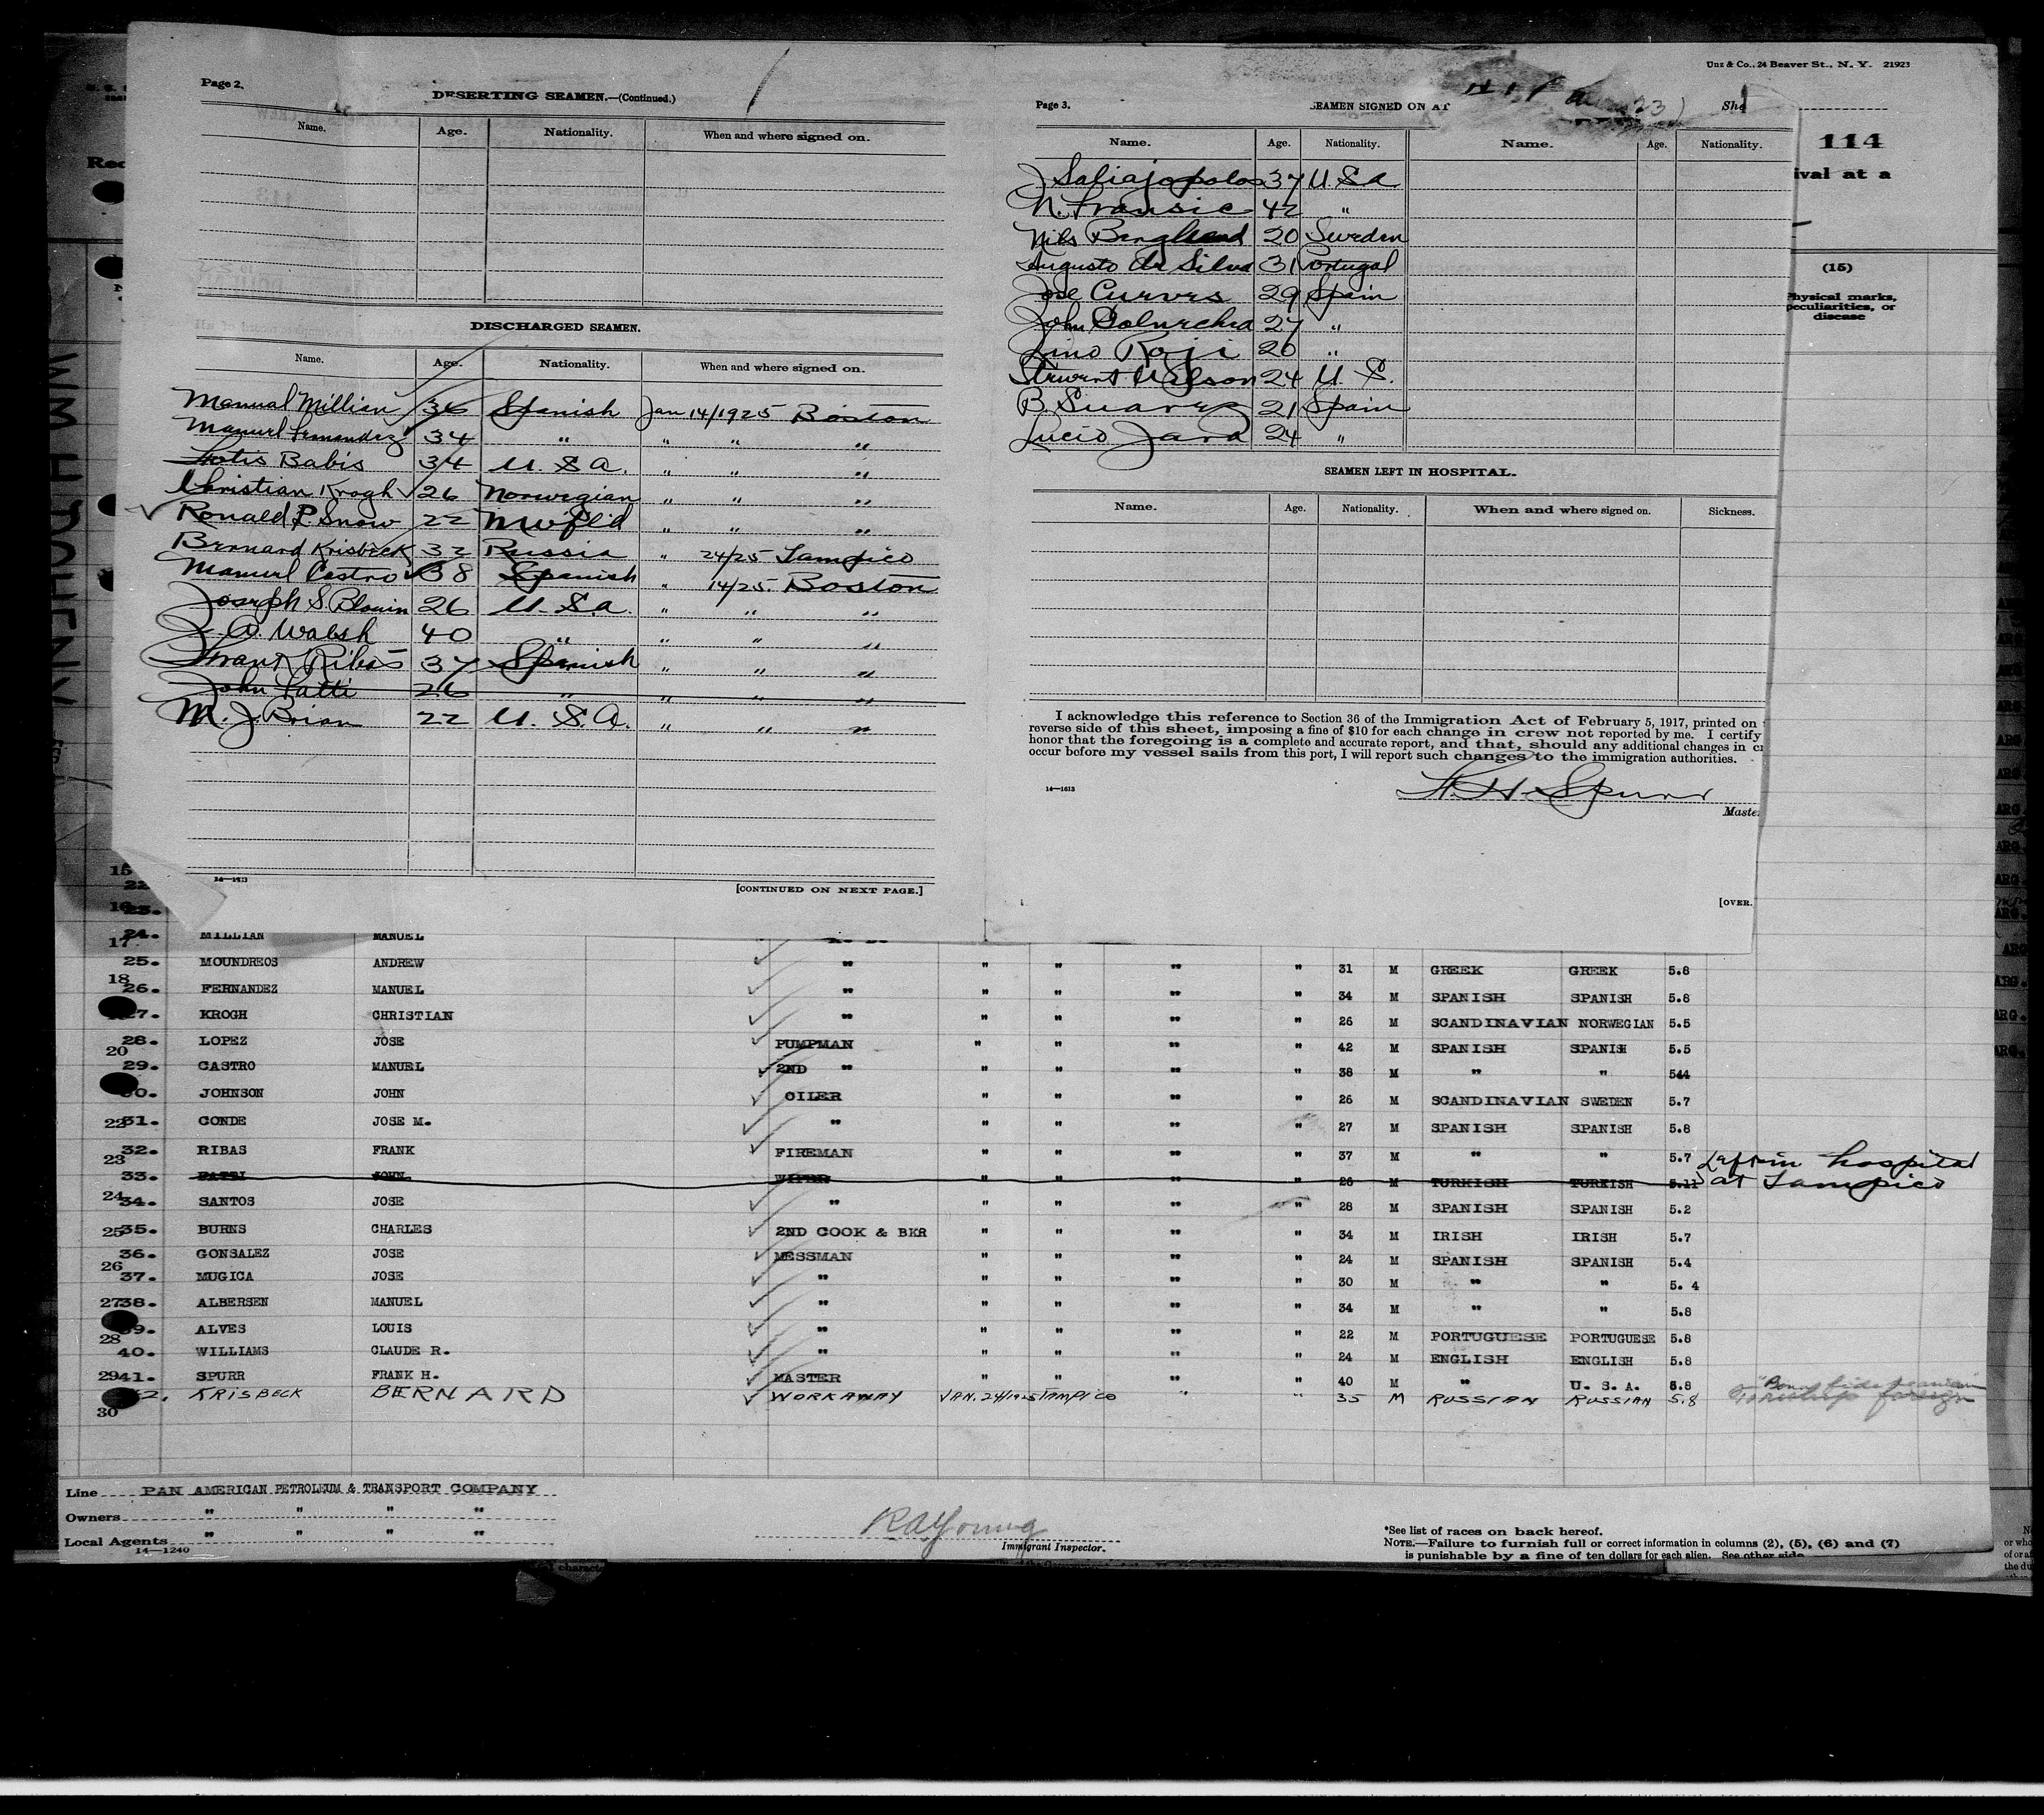 Page 2.
DESERTING SEAMEN.—(Continued.)
Name. Age. Nationality. When and where signed on.
DISCHARGED SEAMEN.
Name. Age. Nationality. When and where signed on.
Manual Millian 36 Spanish Jan 14/1925 Boston
Manuel Fernandez 34 " " " "
Fotis Babis 34 U. S a. " " "
Christian Krogh 26 Norwegian " " "
Ronald P. Snow 22 Nwfld " " "
Bernard Krisbeck 32 Russia " 24/25 Tampico
Manuel Castro 38 Spanish " 14/25. Boston
Joseph S. Blouin 26 U. S. a. " " "
J. A. Walsh 40 " " " "
Frank Ribas 37 Spanish " " "
John Patti 26 " " " "
M. J. Brian 22 U. S. A. " " "
14—1613
[CONTINUED ON NEXT PAGE.]
Unz & Co., 24 Beaver St., N. Y. 21923
Page 3.
SEAMEN SIGNED ON AT
Name. Age. Nationality. Name. Age. Nationality.
J Saliajopolos 37 U. S a
N. Fransic 42 "
Nils Berglund 20 Sweden
Augusto da Silva 31 Portugal
Jose Cuevas 29 Spain
John 27 "
Lino Roji 26 "
Stewart Wilson 24 U. S.
B. Suarez 21 Spain
Lucio Jara 24 "
SEAMEN LEFT IN HOSPITAL.
Name. Age. Nationality. When and where signed on. Sickness.
I acknowledge this reference to Section 36 of the Immigration Act of February 5, 1917, printed on
reverse side of this sheet, imposing a fine of $10 for each change in crew not reported by me. I certify
honor that the foregoing is a complete and accurate report, and that, should any additional changes in
occur before my vessel sails from this port, I will report such changes to the immigration authorities.
F. H. Spurr
14—1613
Maste
[OVER.
114
ival at a
(15)
Physical marks,
peculiarities, or
disease
24. MILLIAN MANUEL
25. MOUNDREOS ANDREW " " " " " 31 M GREEK GREEK 5.8
26. FERNANDEZ MANUEL " " " " " 34 M SPANISH SPANISH 5.8
27. KROGH CHRISTIAN " " " " " 26 M SCANDINAVIAN NORWEGIAN 5.5
28. LOPEZ JOSE PUMPMAN " " " " 42 M SPANISH SPANISH 5.5
29. CASTRO MANUEL 2ND " " " " " 38 M " " 544
30. JOHNSON JOHN OILER " " " " 26 M SCANDINAVIAN SWEDEN 5.7
31. CONDE JOSE M. " " " " " 27 M SPANISH SPANISH 5.8
32. RIBAS FRANK FIREMAN " " " " 37 M " " 5.7 Left in hospital
33. PATTI JOHN WIPER " " " " 26 M TURKISH TURKISH 5.11 at Tampico
34. SANTOS JOSE " " " " " 28 M SPANISH SPANISH 5.2
35. BURNS CHARLES 2ND COOK & BKR " " " " 34 M IRISH IRISH 5.7
36. GONSALEZ JOSE MESSMAN " " " " 24 M SPANISH SPANISH 5.4
37. MUGICA JOSE " " " " " 30 M " " 5. 4
38. ALBERSEN MANUEL " " " " " 34 M " " 5.8
39. ALVES LOUIS " " " " " 22 M PORTUGUESE PORTUGUESE 5.8
40. WILLIAMS CLAUDE R. " " " " " 24 M ENGLISH ENGLISH 5.8
41. SPURR FRANK H. MASTER " " " " 40 M " U. S. A. 5.8
42. KRISBECK BERNARD WORKAWAY JAN. 24/1925 TAMPICO " " 35 M RUSSIAN RUSSIAN 5.8 Bona fide seaman
foreign
Line PAN AMERICAN PETROLEUM & TRANSPORT COMPANY
Owners " " " "
Local Agents " " " "
14—1240
RA Young
Immigrant Inspector.
*See list of races on back hereof.
NOTE.—Failure to furnish full or correct information in columns (2), (5), (6) and (7)
is punishable by a fine of ten dollars for each alien. See other side